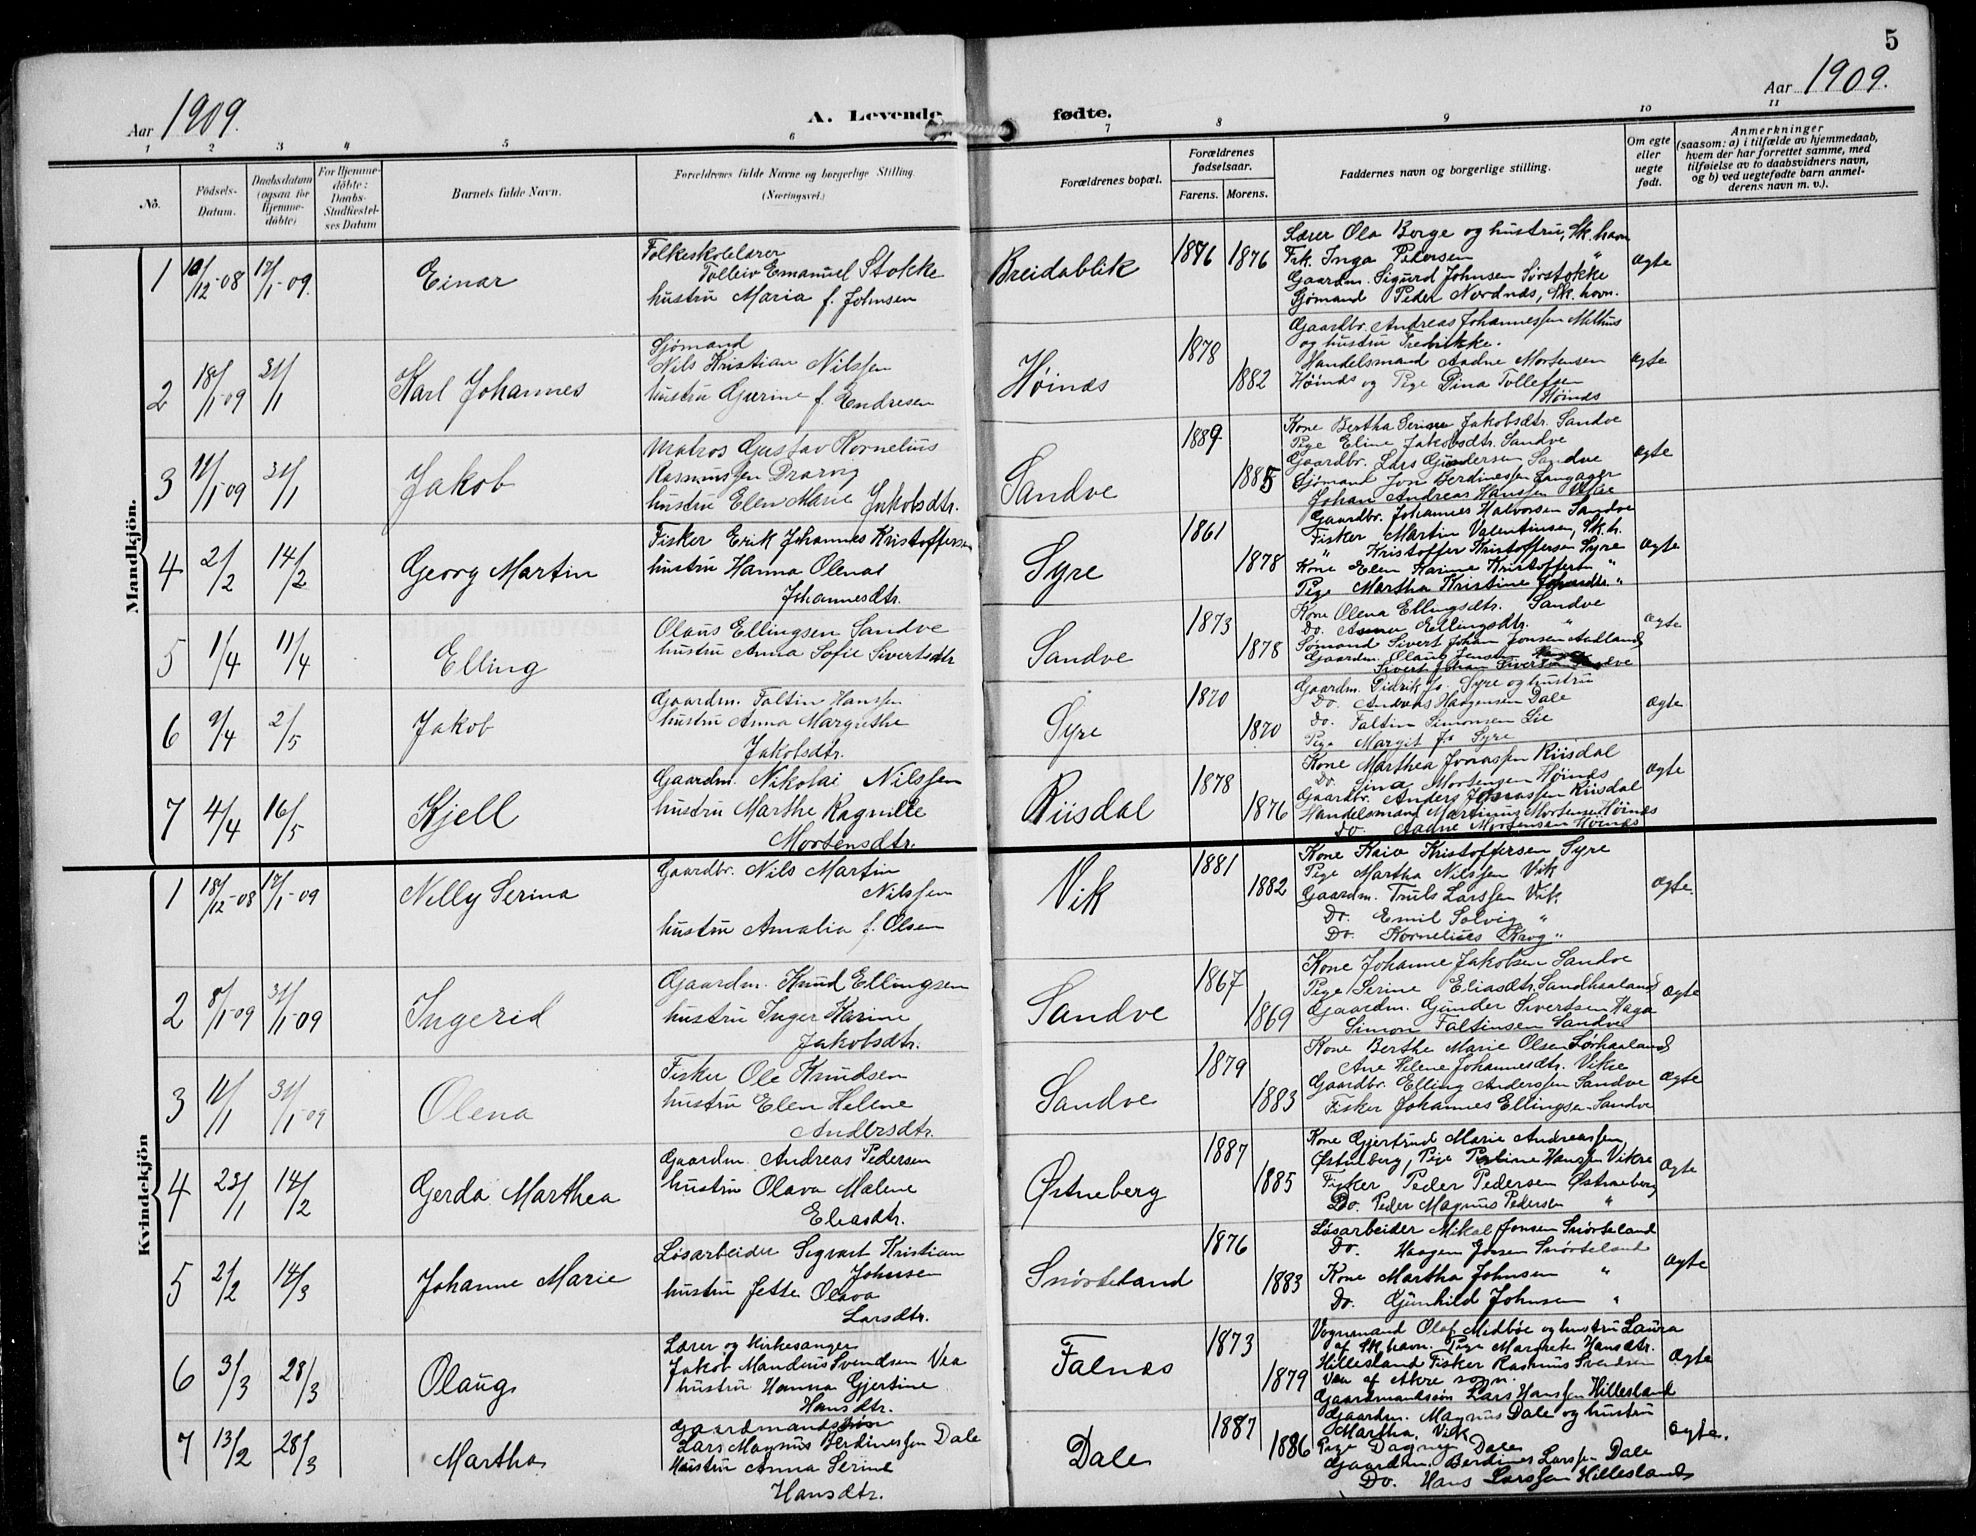 5
Aar 1909.
A. Levende fødte.
Aar 1909.
1 2 3 4 5 6 7 8 9 10 11
No.
Fødsels-Datum.
Daabsdatum (ogsaa for Hjemme-døbte)
For Hjemme-døbte: Daabs-Stadfæstel-ses Datum
Barnets fulde Navn.
Forældrenes fulde Navne og borgerlige Stilling. (Næringsvei.)
Forældrenes bopæl.
Forældrenes fødselsaar.
Farens. Morens.
Faddernes navn og borgerlige stilling.
Om egte eller uegte født.
Anmerkninger (saasom: a) i tilfælde av hjemmedaab, hvem der har forrettet samme, med tilføielse av to daabsvidners navn, og b) ved uegtefødte barn anmel-derens navn m. v.).
Mandkjön.
1 10/12-08 17/1-09. Einar
Folkeskolelærer
Tolleiv Emanuel Stokke
hustru Maria f. Johnsen
Breidablik 1876 1876
Lærer Ola Borge og hustru, Sk. havn
Frk. Inga Pedersen "
Gaardm. Sigurd Johnsen Sørstokke
Sjømand Peder Nordnæs, Sk. havn.
Ægte
2 18/1-09 31/1 Karl Johannes
Sjømand
Nils Kristian Nilssen
hustru Gurine f. Endresen
Høinæs 1878 1882
Gaardbr. Andreas Johannessen Mithus
og hustru Fredrikke.
Handelsmand Aadne Mortensen
Høinæs og Pige Dina Tollefsen
Høinæs
Ægte
3 11/1-09 31/1 Jakob
Matros Gustav Kornelius
Rasmussen
hustru Elen Marie Jakobsdtr.
Sandve 1889 1885
Kone Bertha Serine Jakobsdtr. Sandve
Pige Eline Jakobsdtr. Sandve
Gaardbr. Lars Gundersen Sandve
Sjømand Jon Berdinessen Langager
Johan Andreas Hanssen Vikre
Ægte
4 2/2 14/2 Georg Martin
Fisker Erik Johannes Kristoffersen
hustru Hanna Olenas
Johannesdtr.
Syre 1861 1878
Gaardbr. Johannes Halvorsen Sandve
Fisker Martin Valentinsen, Sk. h.
" Kristoffer Kristoffersen Syre
Kone Elen Karine Kristoffersen "
Pige Martha Kristine "
Ægte
5 1/4 11/4 Elling
Olaus Ellingsen Sandve
hustru Anna Sofie Sivertsdtr
Sandve 1873 1878
Kone Olena Ellingsdtr. Sandve
Do. Anna Ellingsdtr. "
Sømand Sivert Johan Jonsen Aadland
Gaardm. Olaus Jensen
Sivert Johan Sivertsen Sandve
Ægte
6 9/4 2/5 Jakob
Gaardm. Faltin Hanssen
hustru Anna Margrethe
Jakobsdtr.
Syre 1870 1870
Gaardm. Didrik Js. Syre og hustru
Do. Andreas Haagensen Dale
Do. Faltin Simonsen Lie
Pige Margit Js Syre
Ægte
7 4/4 16/5 Kjell
Gaardm. Nikolai Nilssen
hustru Marthe Ragnille
Mortensdtr.
Riisdal 1878 1876
Kone Marthea Jonassen Riisdal
Do. Sina Mortensen Høinæs
Gaardbr. Anders Jonassen Riisdal
Handelsmand Martinus Mortensen Høinæs
Do. Aadne Mortensen Høinæs
Ægte
Kvindekjön
1 18/12-08 17/1-09 Nelly Serina
Gaardbr. Nils Martin
Nilssen
hustru Amalia f. Olsen
Vik 1881 1882
Kone Kaia Kristoffersen Syre
Pige Martha Nilssen Vik
Gaardm. Truls Larssen Vik
Do. Emil Solvig "
Do. Kornelius Krog "
Ægte.
2 8/1-09 31/1-09 Ingerid
Gaardm. Knud Ellingsen
hustru Inger Karine
Jakobsdtr.
Sandve 1867 1869
Kone Johanne Jakobsen Sandve
Pige Serine Eliasdtr. Sandhaaland
Gaardm. Gunder Sivertsen Haga
Simon Faltinsen Sandve
Ægte
3 11/1 31/1-09 Olena
Fisker Ole Knudsen
hustru Elen Helene
Andersdtr.
Sandve 1879 1883
Kone Berthe Marie Olsen Sørhaaland
Ane Helene Johannesdtr. Vikre
Gaardbr. Elling Anderssen Sandve
Fisker Johannes Ellingsen Sandve
Ægte
4 23/1 14/2 Gerda Marthea
Gaardm. Andreas Pedersen
hustru Olava Malene
Eliasdtr.
Østneberg 1887 1885
Kone Gjertrud Marie Andreassen
Østneberg, Pige Pauline Hanssen Vikre
Fisker Peder Pedersen Østneberg
Do. Peder Magnus Pedersen "
Ægte
5 2/2 14/3 Johanne Marie
Løsarbeider Sigvart Kristian
Johnsen
hustru Jette Olava
Larsdtr.
Snørteland 1876 1883
Løsarbeider Mikal Jonsen Snørteland
Do. Haagen Jonsen Snørteland
Kone Martha Johnsen "
Do. Gunhild Johnsen "
Ægte
6 3/3 28/3 Olaug
Lærer og Kirkesanger
Jakob Mandius Svendsen Vea
hustru Hanna Gjertine
Hansdtr.
Falnæs 1873 1879
Vognmand Olaf Midbøe og hustru Laura
af Sk. havn. Pige Margrete Hansdtr.
Hillesland Fisker Rasmus Svendsen
Vea af Akre sogn.
Gaardmandssøn Lars Hanssen Hillesland
Ægte
7 13/2 28/3 Martha
Gaardmandssøn
Lars Magnus Berdinessen Dale
Hustru Anna Serine
Hansdtr.
Dale 1887 1886
Gaardm. Magnus Dale og hustru
Martha, Vik
Pige Dagny Dale
Gaardm. Berdines Larssen Dale
Do. Hans Larssen Hillesland
Ægte.